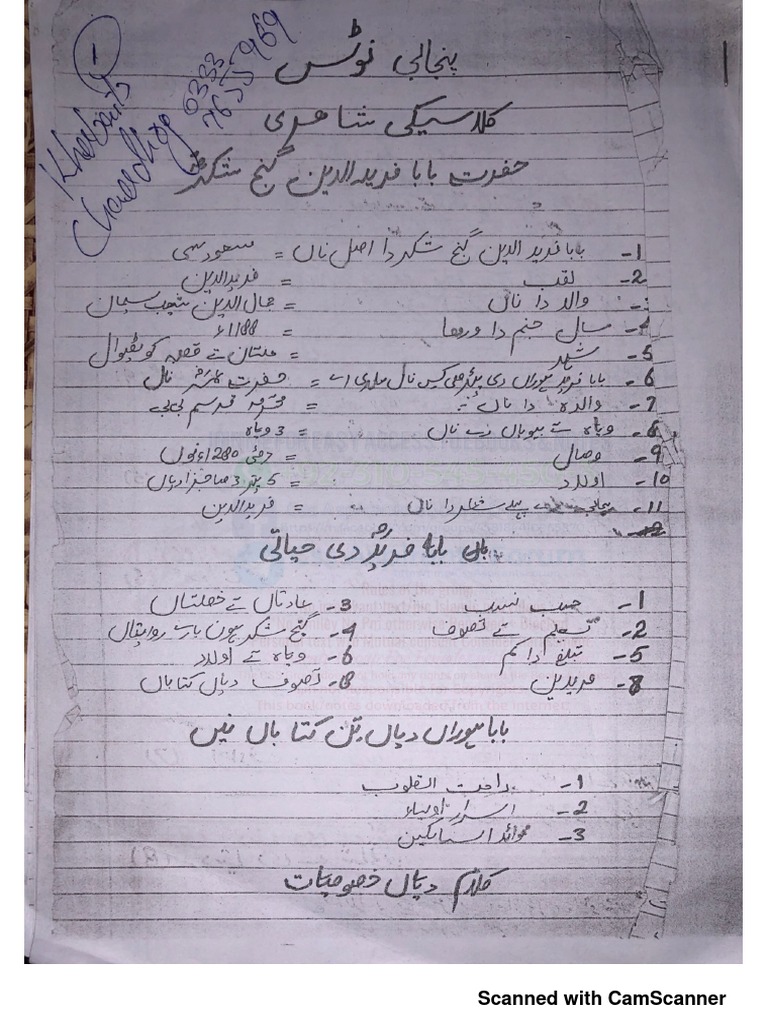 پنجابی نوٹس
کلاسیکی شاعری
حضرت بابا فریدالدین گنج شکرؒ
0333
7655969
1- بابا فرید الدین گنج شکر دا اصل ناں = مسعود
2- لقب = فریدالدین
والد دا ناں = جمال الدین سلیمان
4- سال جنم دا ورھا = 1188ء
5- شہر = ملتان تے قصبہ کوٹھیوال
6- بابا فرید ہوراں دی پیڑھی کیس نال ملدی اے = حضرت عمرؓ نال
7- والدہ دا ناں = قرسم بی بی
8- ویاہ تے بیویاں دے ناں = 3 ویاہ
9- وصال = 1280ء نوں
10- اولاد = 5 پتر 3 صاحبزادیاں
11- پہلے شاعر دا ناں = فریدالدین
بابا فریدؒ دی حیاتی
1- حسب نسب 3- عادتاں تے خصلتاں
2- تعلیم تے تصوف 4- گنج شکر ہون بارے روایتاں
5- تبلیغ دا کم 6- ویاہ تے اولاد
8- مریدین 8- تصوف دیاں کتاباں
بابا ہوراں دیاں تن کتاباں نیں
1- راحت القلوب
2- اسرار اولیاء
3- فوائد السالکین
کلام دیاں خصوصیات
1
Scanned with CamScanner